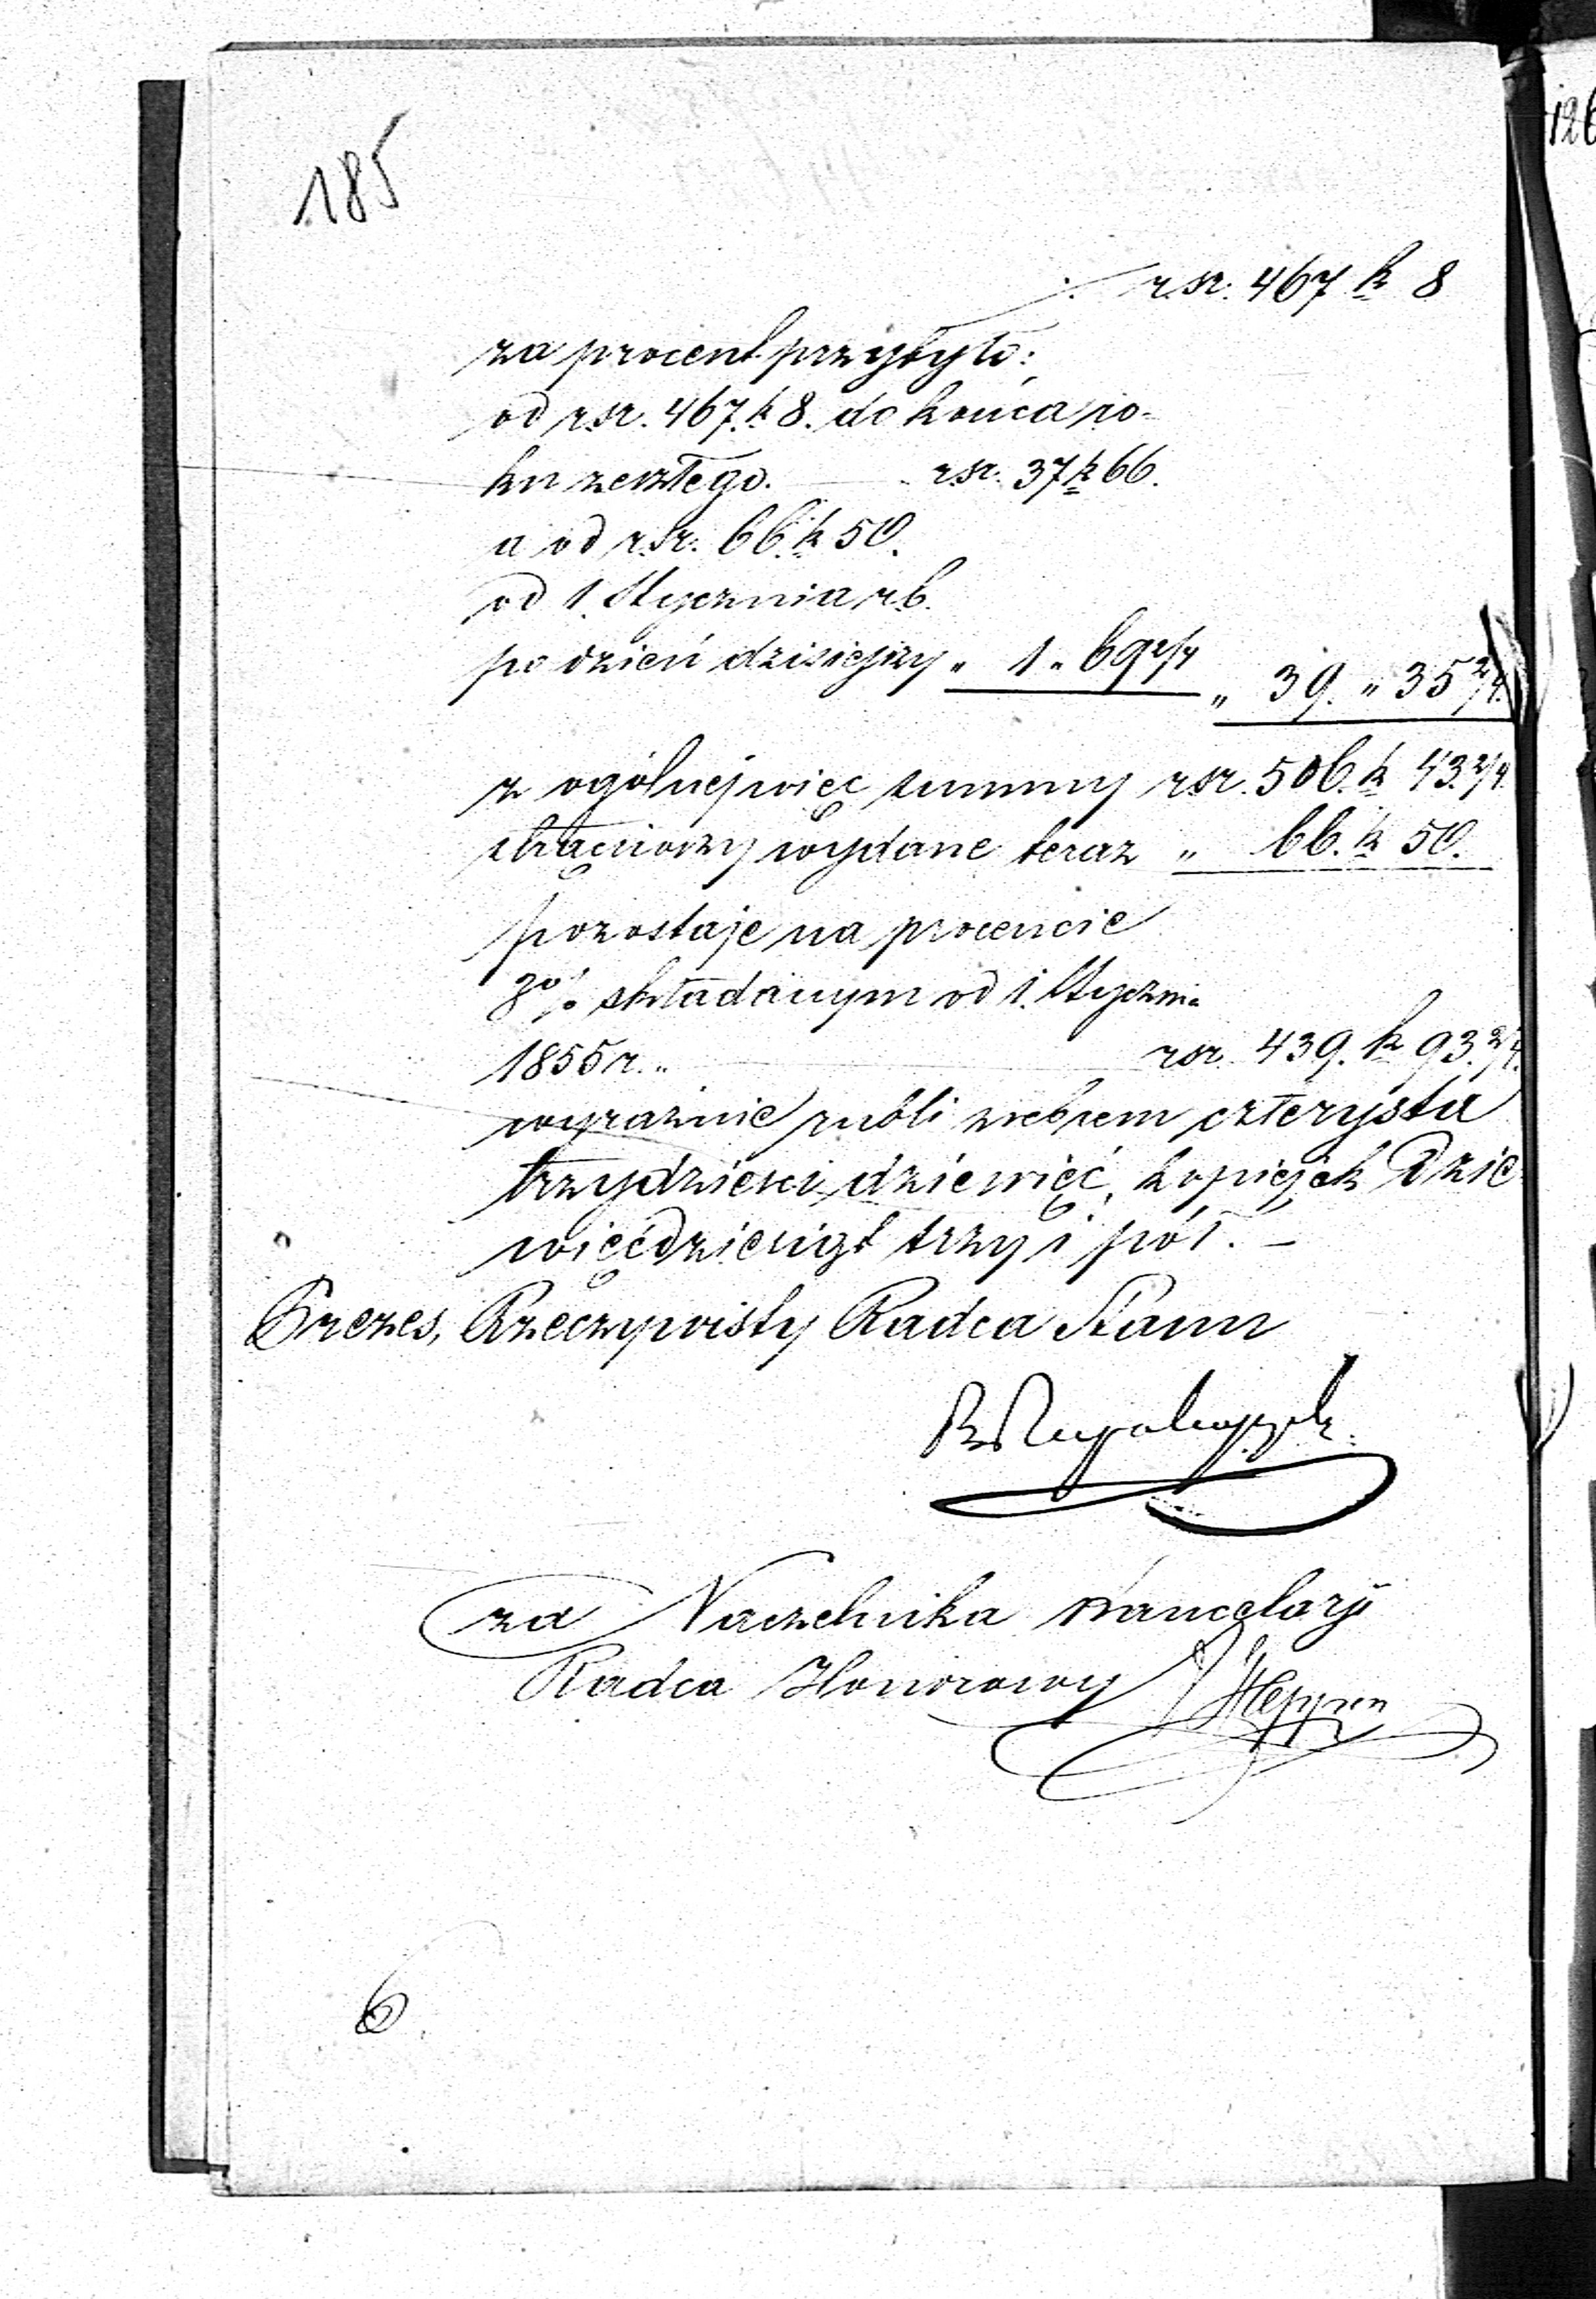 185
126
rsr. 467 k 8
za procent przybyło:
od rsr. 467. k 8. do końca ro-
ku zeszłego. rsr. 37 k 66.
a od rsr. 66. k 50.
od 1. Stycznia r.b.
po dzień dzisiejszy " 1 " 69 2/4 " 39. " 35 2/4.
z ogólnej więc summy rsr. 506. k 43. 2/4.
strąciwszy wydane teraz " 66. k 50.
pozostaje na procencie
składanym od 1. Stycznia
1855 r. " rsr. 439. k 93. 2/4.
wyraźnie rubli srebrem czterysta
trzydzieści dziewięć, kopiejek Dzie
więćdziesiąt trzy i pół. –
Prezes, Rzeczywisty Radca Stanu
za Naczelnika Kancelaryi
Radca Honorowy
6